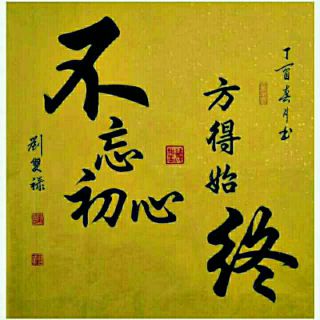 不忘初心
方得始终
丁酉春月书
劉雙禄